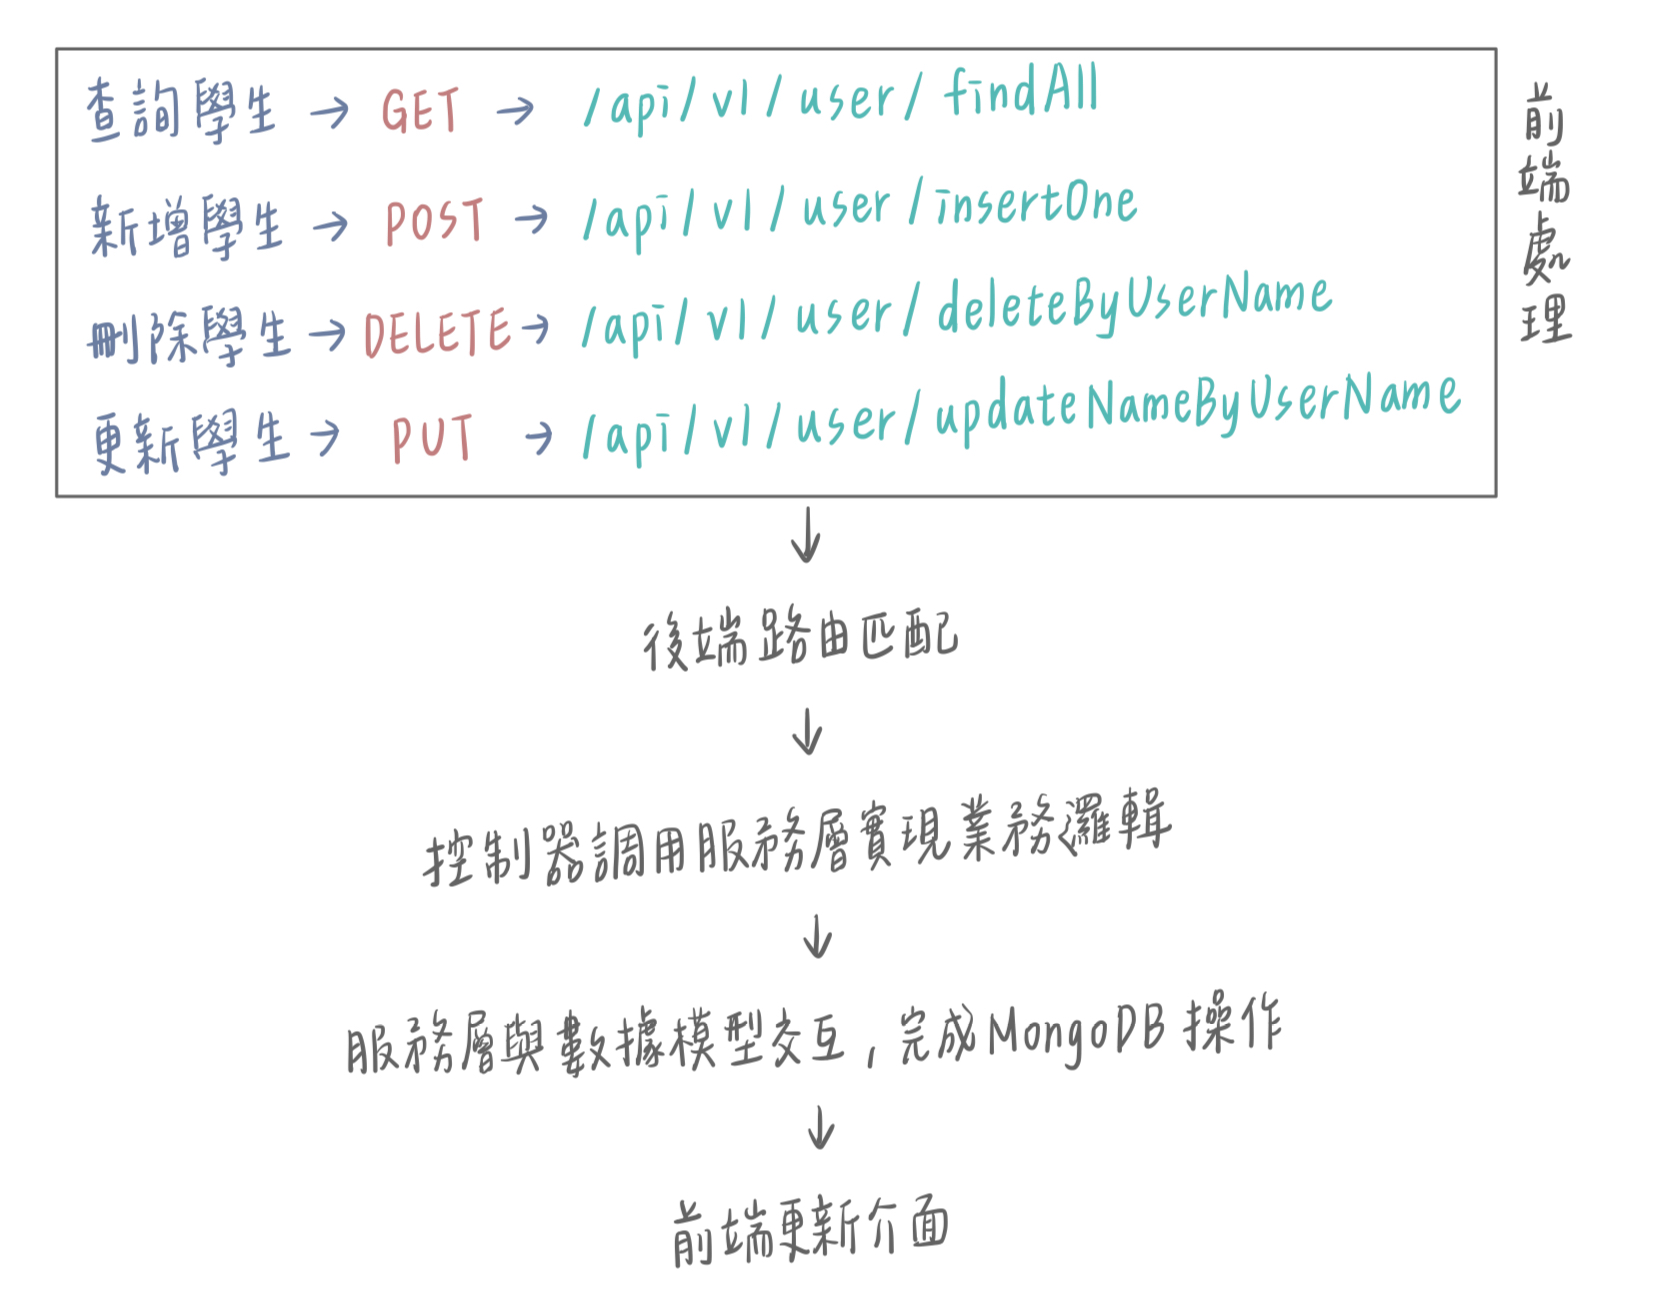 查詢學生 → GET → /api/v1/user/findAll
新增學生 → POST → /api/v1/user/insertOne
刪除學生 → DELETE → /api/v1/user/deleteByUserName
更新學生 → PUT → /api/v1/user/updateNameByUserName
前端處理
↓
後端路由匹配
↓
控制器調用服務層實現業務邏輯
↓
服務層與數據模型交互,完成MongoDB操作
↓
前端更新介面